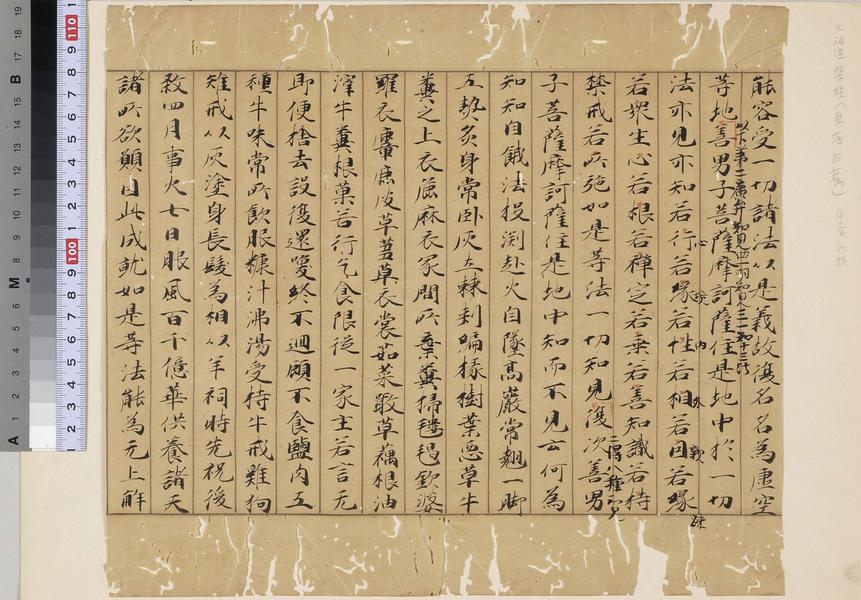 能容受一切諸法以是義故復名名為虚空
等地善男子菩薩摩訶薩住是地中於一切
法亦見亦知若行若縁若性若相若因若縁
若衆生心若根若禅定若乗若善知識若持
禁戒若所施如是等法一切知見復次善男
子菩薩摩訶薩住是地中知而不見云何為
知知自餓法投渕赴火自墜高巖常翹一脚
五熱炙身常卧灰土棘刺編椽樹葉悪草牛
糞之上衣麁麻衣冢間所棄糞掃氀毼欽婆
羅衣麞鹿皮革蒭草衣裳茹菜噉草藕根油
滓牛糞根菓若行乞食限従一家主若言无
即便捨去設復還喚終不迴顧不食鹽肉五
種牛味常所飲服糠汁沸湯受持牛戒雞狗
雉戒以灰塗身長髪為相以羊祠時先祝後
煞四月事火七日服風百千億華供養諸天
諸所欲願因此成就如是等法能為无上解